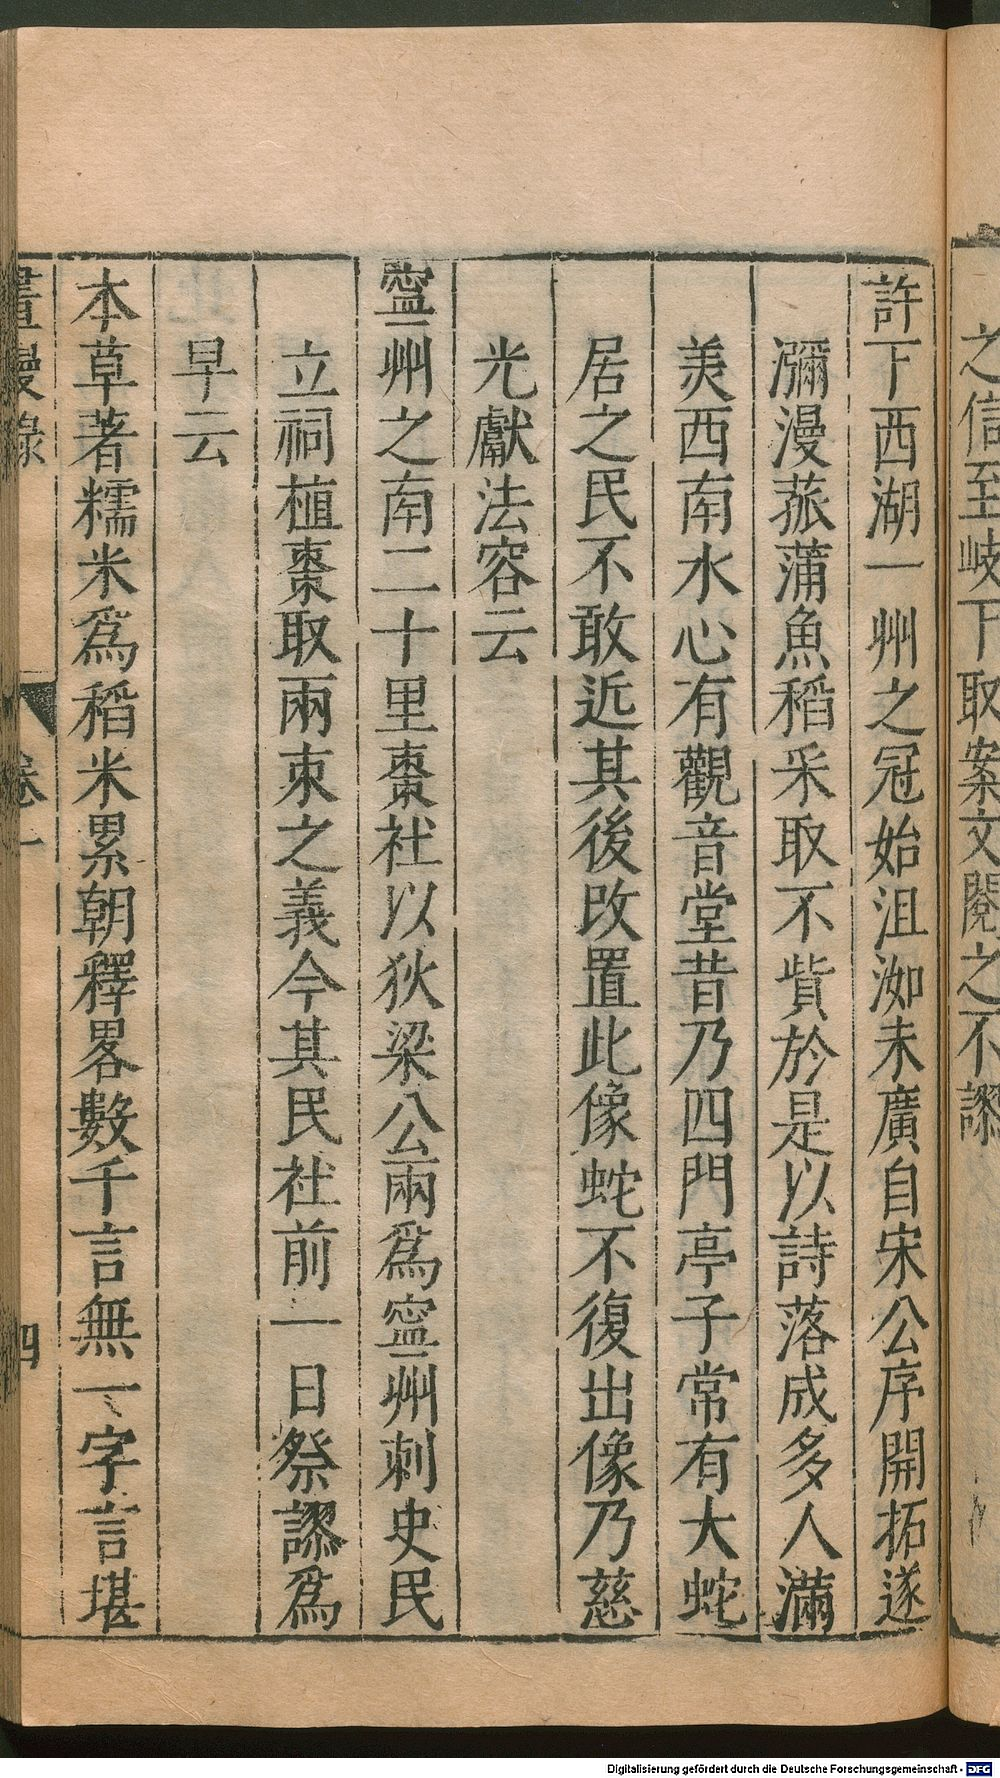 之信至岐下取案文閱之不謬
許下西湖一州之冠始沮洳未廣自宋公序開拓遂
瀰漫菰蒲魚稻采取不貲於是以詩落成多人滿
美西南水心有觀音堂昔乃四門亭子常有大蛇
居之民不敢近其後改置此像蛇不復出像乃慈
光獻法容云
寧州之南二十里棗社以狄梁公兩爲寧州刺史民
立祠植棗取兩朿之義今其民社前一日祭謬爲
早云
本草著糯米爲稻米累朝釋畧數千言無一字言堪
畫墁錄 卷一 四
Digitalisierung gefördert durch die Deutsche Forschungsgemeinschaft - DFG